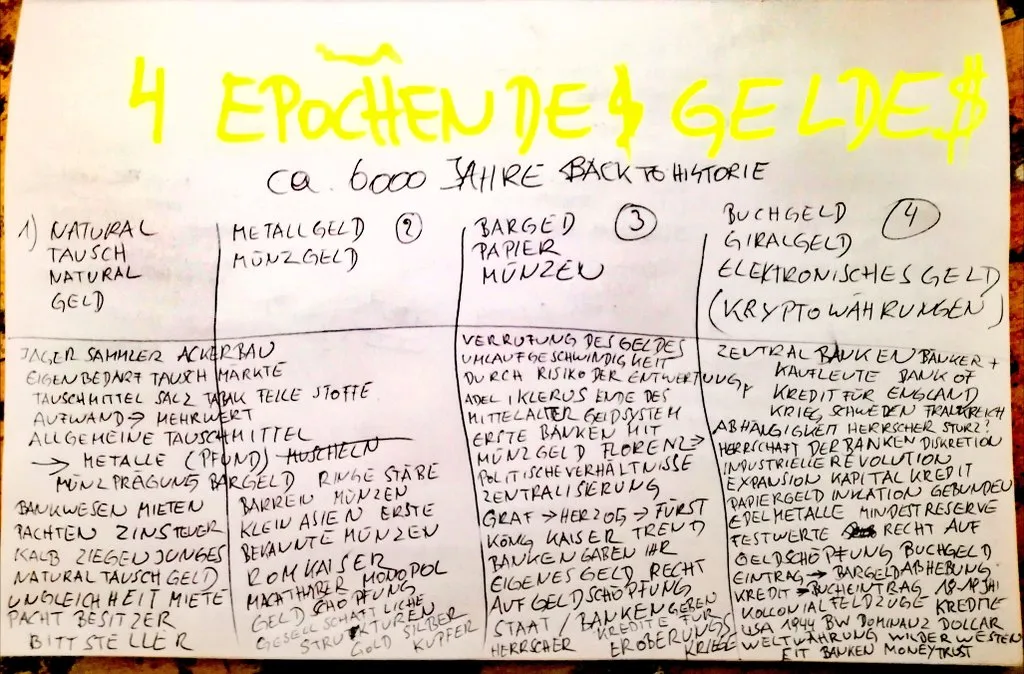 4 EPOCHEN DE$ GELDE$
ca. 6000 JAHRE BACK TO HISTORIE
1) NATURAL
TAUSCH
NATURAL
GELD
METALLGELD 2
MÜNZGELD
BARGED 3
PAPIER
MÜNZEN
BUCHGELD 4
GIRALGELD
ELEKTRONISCHES GELD
(KRYPTOWÄHRUNGEN)
JÄGER SAMMLER ACKERBAU
EIGENBEDARF TAUSCH MÄRKTE
TAUSCHMITTEL SALZ TABAK FELLE STOFFE
AUFWAND → MEHRWERT
ALLGEMEINE TAUSCHMITTEL
→ METALLE (PFUND) MUSCHELN
MÜNZPRÄGUNG BARGELD RINGE STÄBE
BANKWESEN MIETEN
PACHTEN ZINSTEUER
KALB ZIEGENJUNGES
NATURALTAUSCHGELD
UNGLEICHHEIT MIETE
PACHT BESITZER
BITTSTELLER
BARREN MÜNZEN
KLEINASIEN ERSTE
BEKANNTE MÜNZEN
ROM KAISER
MACHTHABER MONOPOL
GELDSCHÖPFUNG
GESELLSCHAFTLICHE
STRUKTUREN
GOLD SILBER
KUPFER
VERRUFUNG DES GELDES
UMLAUFGESCHWINDIGKEIT
DURCH RISIKO DER ENTWERTUNG
ADEL, KLERUS ENDE DES
MITTELALTER GELDSYSTEM
ERSTE BANKEN MIT
MÜNZGELD FLORENZ →
POLITISCHEVERHÄLTNISSE
ZENTRALISIERUNG
GRAF → HERZOG → FÜRST
KÖNIG KAISER TREND
BANKEN GABEN IHR
EIGENES GELD RECHT
AUF GELDSCHÖPFUNG
STAAT / BANKEN GEBEN
HERRSCHER KREDITE FÜR
EROBERUNGS
KRIEGE
ZENTRALBANKEN BANKER +
KAUFLEUTE BANK OF
KREDIT FÜR ENGLAND
KRIEG, SCHWEDEN FRANKREICH
ABHÄNGIGKEIT HERRSCHER STURZ?
HERRSCHAFT DER BANKEN DISKRETION
INDUSTRIELLE REVOLUTION
EXPANSION KAPITAL KREDIT
PAPIERGELD INKLATION GEBUNDEN
EDELMETALLE MINDESTRESERVE
FESTWERTE RECHT AUF
GELDSCHÖPFUNG BUCHGELD
EINTRAG → BARGELDABHEBUNG
KREDIT → BUCHEINTRAG 18-19 JHI
KOLLONIALFELDZÜGE KREDITE
USA 1944 BW DOMINANZ DOLLAR
WELTWÄHRUNG WILDER WESTEN
EIT BANKEN MONEYTRUST